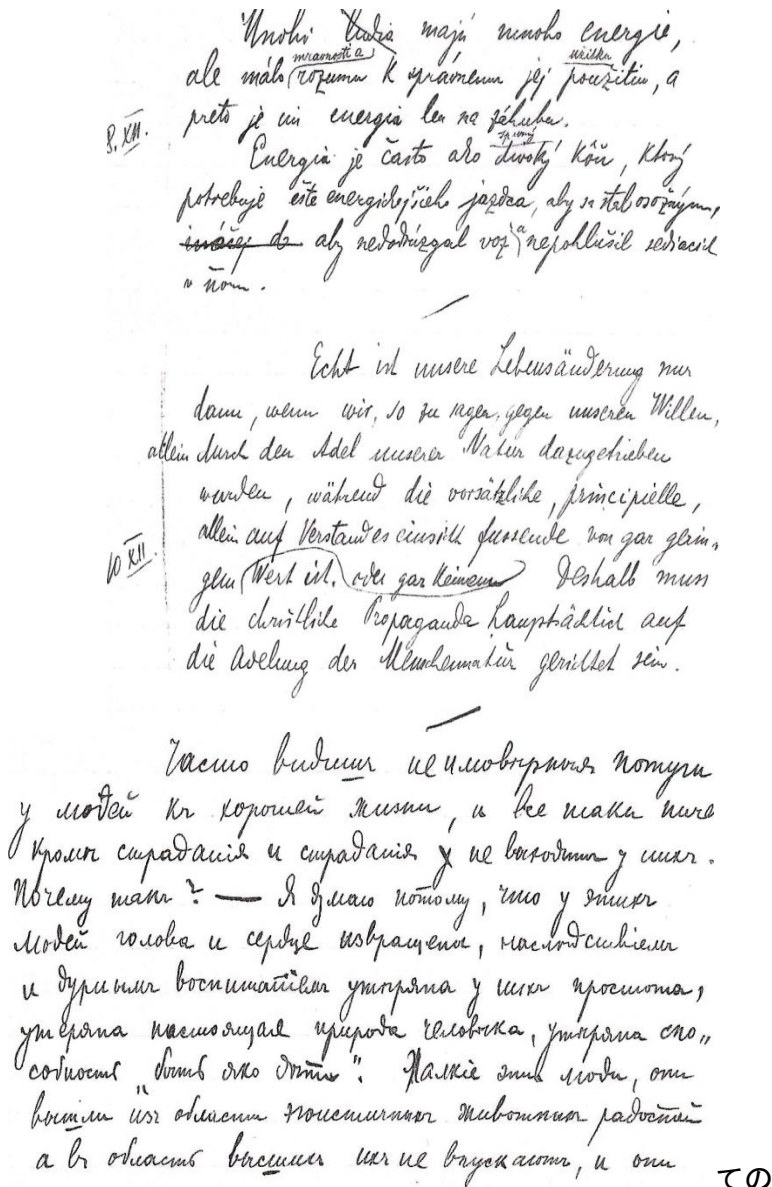 Mnohí ľudia majú mnoho energie,
mravnosti a
úžitku
ale málo rozumu k správnemu jej použitiu, a
8. XII.
preto je im energia len na záhubu.
Energia je často ako divoký kôň, ktorý
potrebuje ešte energickejšieho jazdca, aby sa stal osožným,
ináčej do aby nedodrúzgal voz a nepohlušil sediacich
v ňom.
Echt ist unsere Lebensänderung nur
dann, wenn wir, so zu sagen, gegen unseren Willen,
allein durch den Adel unserer Natur dazugetrieben
wurden, während die vorsätzliche, principielle,
allein auf Verstandeseinsicht fussende von gar gerin„
10 XII.
gem Wert ist, oder gar keinem Deshalb muss
die christliche Propaganda hauptsächlich auf
die Adelung der Menschennatur gerichtet sein.
Часто видишь неимовѣрныя потуги
у людей къ хорошей жизни, и все таки ниче
кромѣ страданія и страданія у не выходитъ у нихъ.
Почему такъ? — Я думаю потому, что у этихъ
людей голова и сердце извращены, наслѣдствіемъ
и дурнымъ воспитаніемъ утѣряна у нихъ простота,
утѣряна настоящая природа человѣка, утѣряна спо„
собность „быть яко дѣти“. Жалкіе эти люди, они
вышли изъ области эгоистичныхъ животныхъ радостей
а въ область высшихъ ихъ не впускаютъ, и они
ての